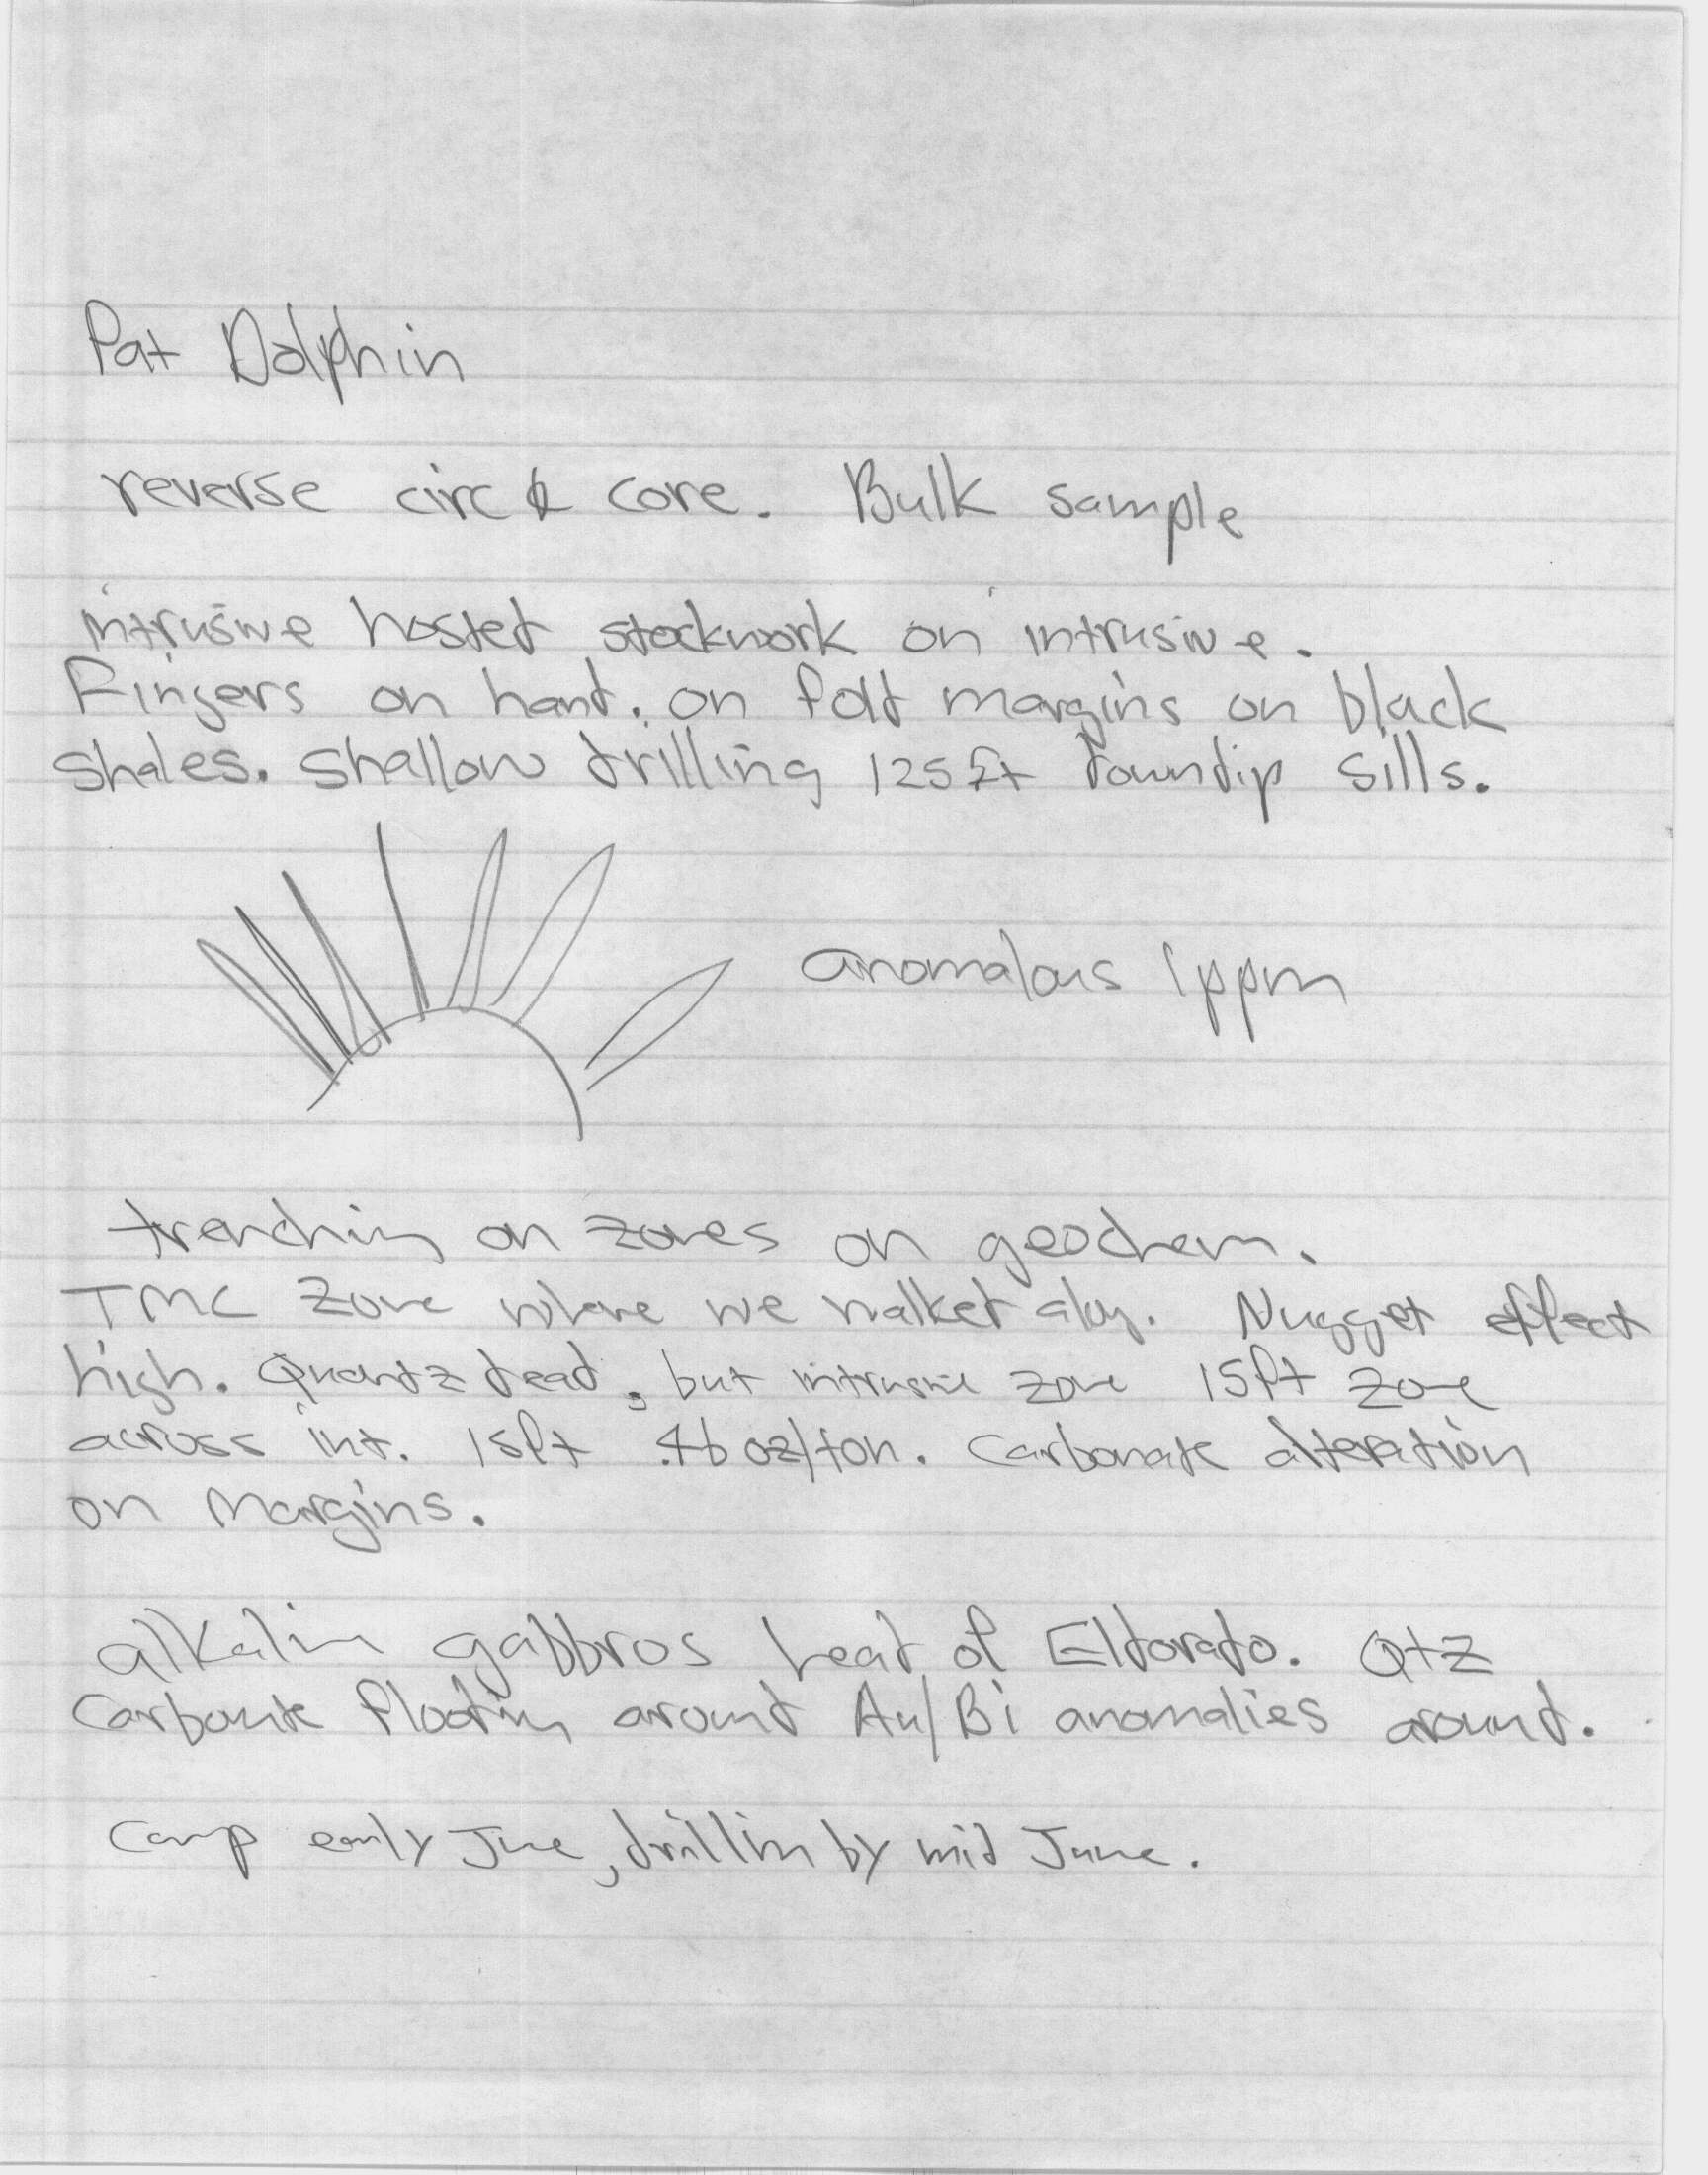 Pat Dolphin
reverse circ & core. Bulk sample
intrusive hosted stockwork on intrusive.
Fingers on hand. on fold margins on black
shales. shallow drilling 125ft downdip sills.
anomalous 1ppm
trenching on zones on geochem.
TMC zone where we walked along. Nugget effect
high. Quartz dead, but intrusive zone 15ft zone
across int. 15ft .46 oz/ton. Carbonate alteration
on margins.
alkalin gabbros head of Eldorado. Qtz
Carbonate flooding around Au/Bi anomalies around.
Camp early June, drillin by mid June.